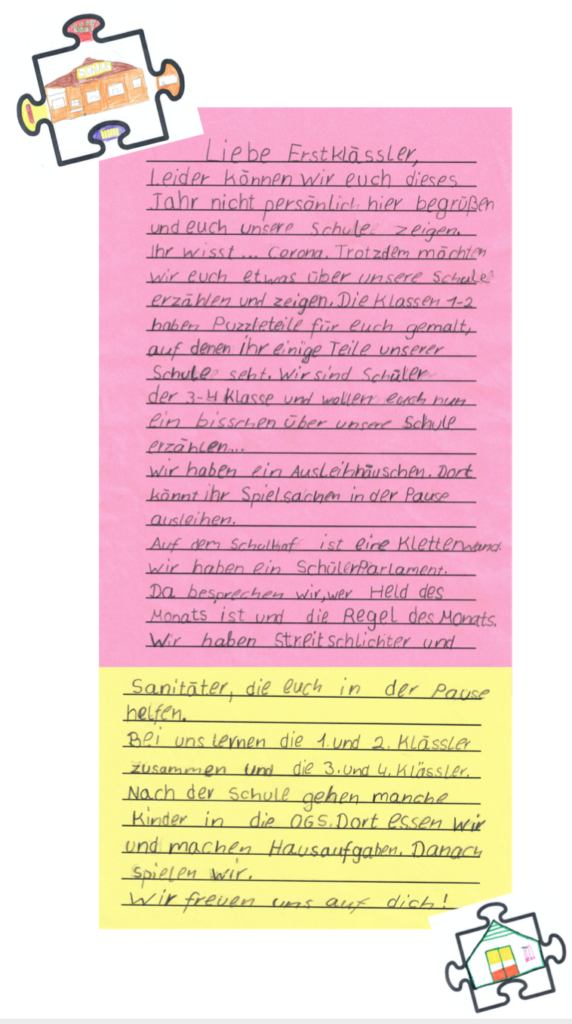 SCHULE
Liebe Erstklässler,
Leider können wir euch dieses
Jahr nicht persönlich hier begrüßen
und euch unsere Schule zeigen.
Ihr wisst... Corona. Trotzdem möchten
wir euch etwas über unsere Schule
erzählen und zeigen. Die Klassen 1-2
haben Puzzleteile für euch gemalt,
auf denen ihr einige Teile unserer
Schule seht. Wir sind Schüler
der 3-4 Klasse und wollen euch nun
ein bisschen über unsere Schule
erzählen...
Wir haben ein Ausleihhäuschen. Dort
könnt ihr Spielsachen in der Pause
ausleihen.
Auf dem Schulhof ist eine Kletterwand.
Wir haben ein SchülerParlament.
Da besprechen wir, wer Held des
Monats ist und die Regel des Monats.
Wir haben Streitschlichter und
Sanitäter, die euch in der Pause
helfen.
Bei uns lernen die 1. und 2. Klässler
zusammen und die 3. und 4. Klässler.
Nach der Schule gehen manche
Kinder in die OGS. Dort essen wir
und machen Hausaufgaben. Danach
spielen wir.
Wir freuen uns auf dich!